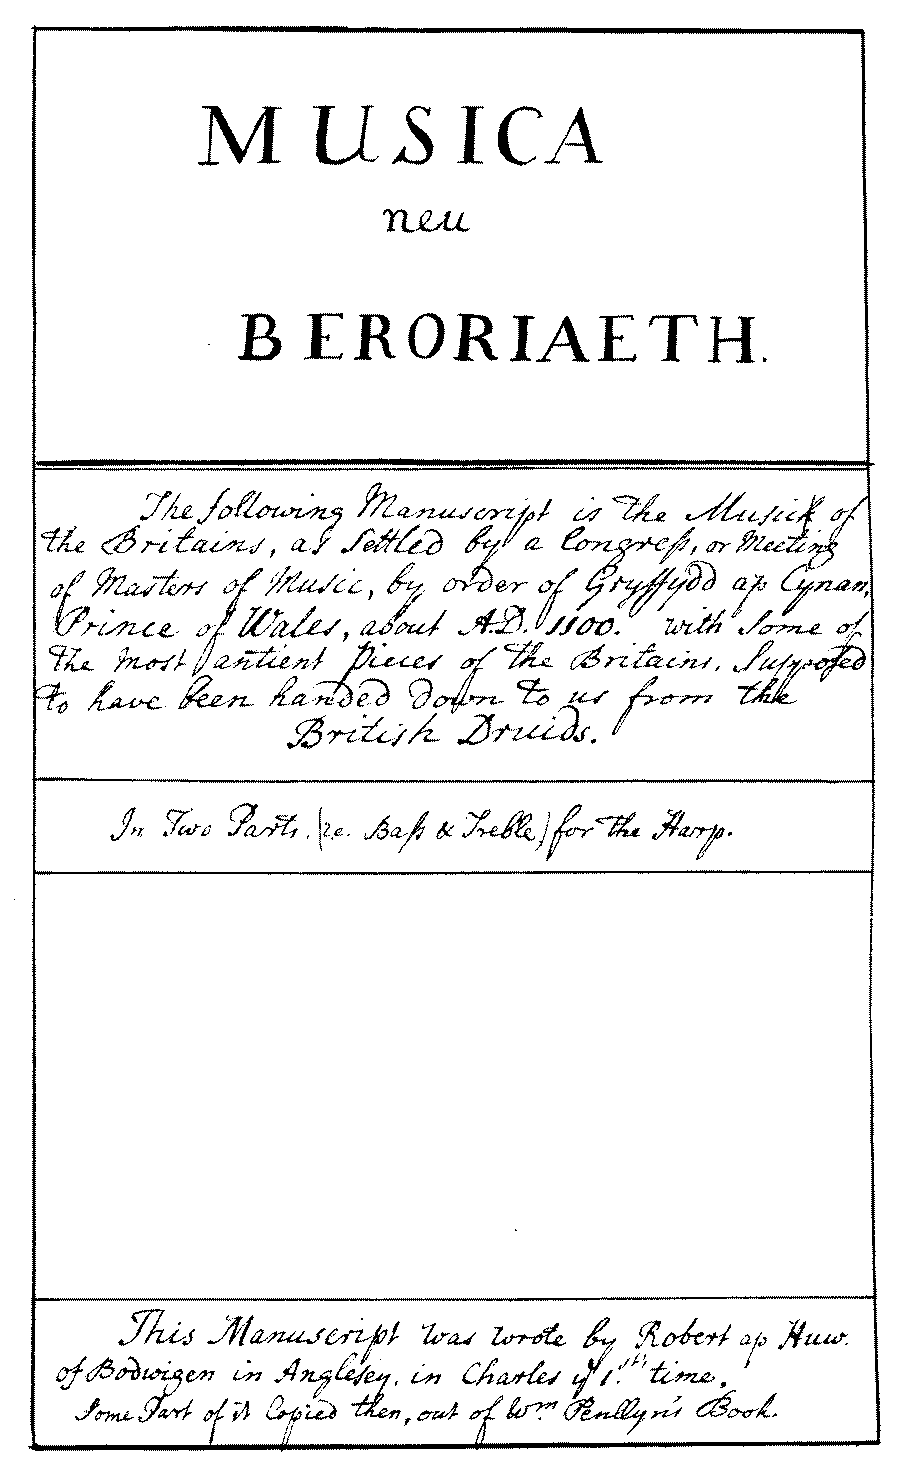 MUSICA
neu
BERORIAETH.
The following Manuscript is the Musick of
the Britains, as settled by a Congress, or Meeting
of Masters of Music, by order of Gryffydd ap Cynan,
Prince of Wales, about A.D. 1100. with some of
the most antient pieces of the Britains, Supposed
to have been handed down to us from the
British Druids.
In Two Parts (ie. Bass & Treble) for the Harp.
This Manuscript was wrote by Robert ap Huw.
of Bodwigen in Anglesey, in Charles ye 1.sts time.
Some Part of it Copied then, out of Wm Penllyn's Book.